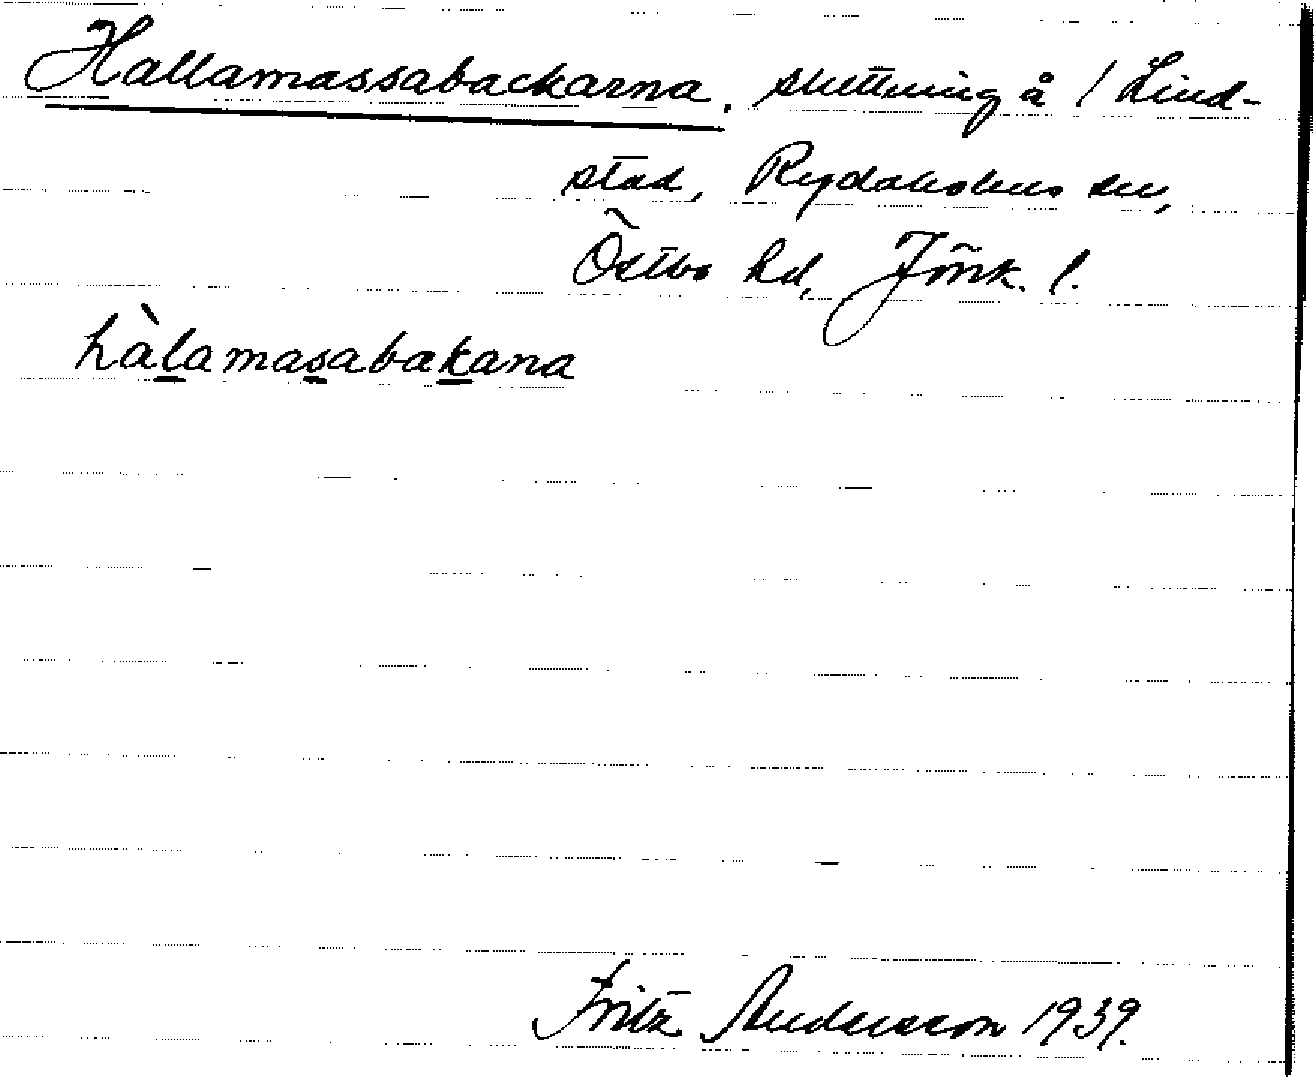 Hallamassabackarna, sluttning å / Lind-
stad, Rydaholms sn,
Östbo hd, Jönk. l.
hàlamasabakana
Fritz Andersson 1939.